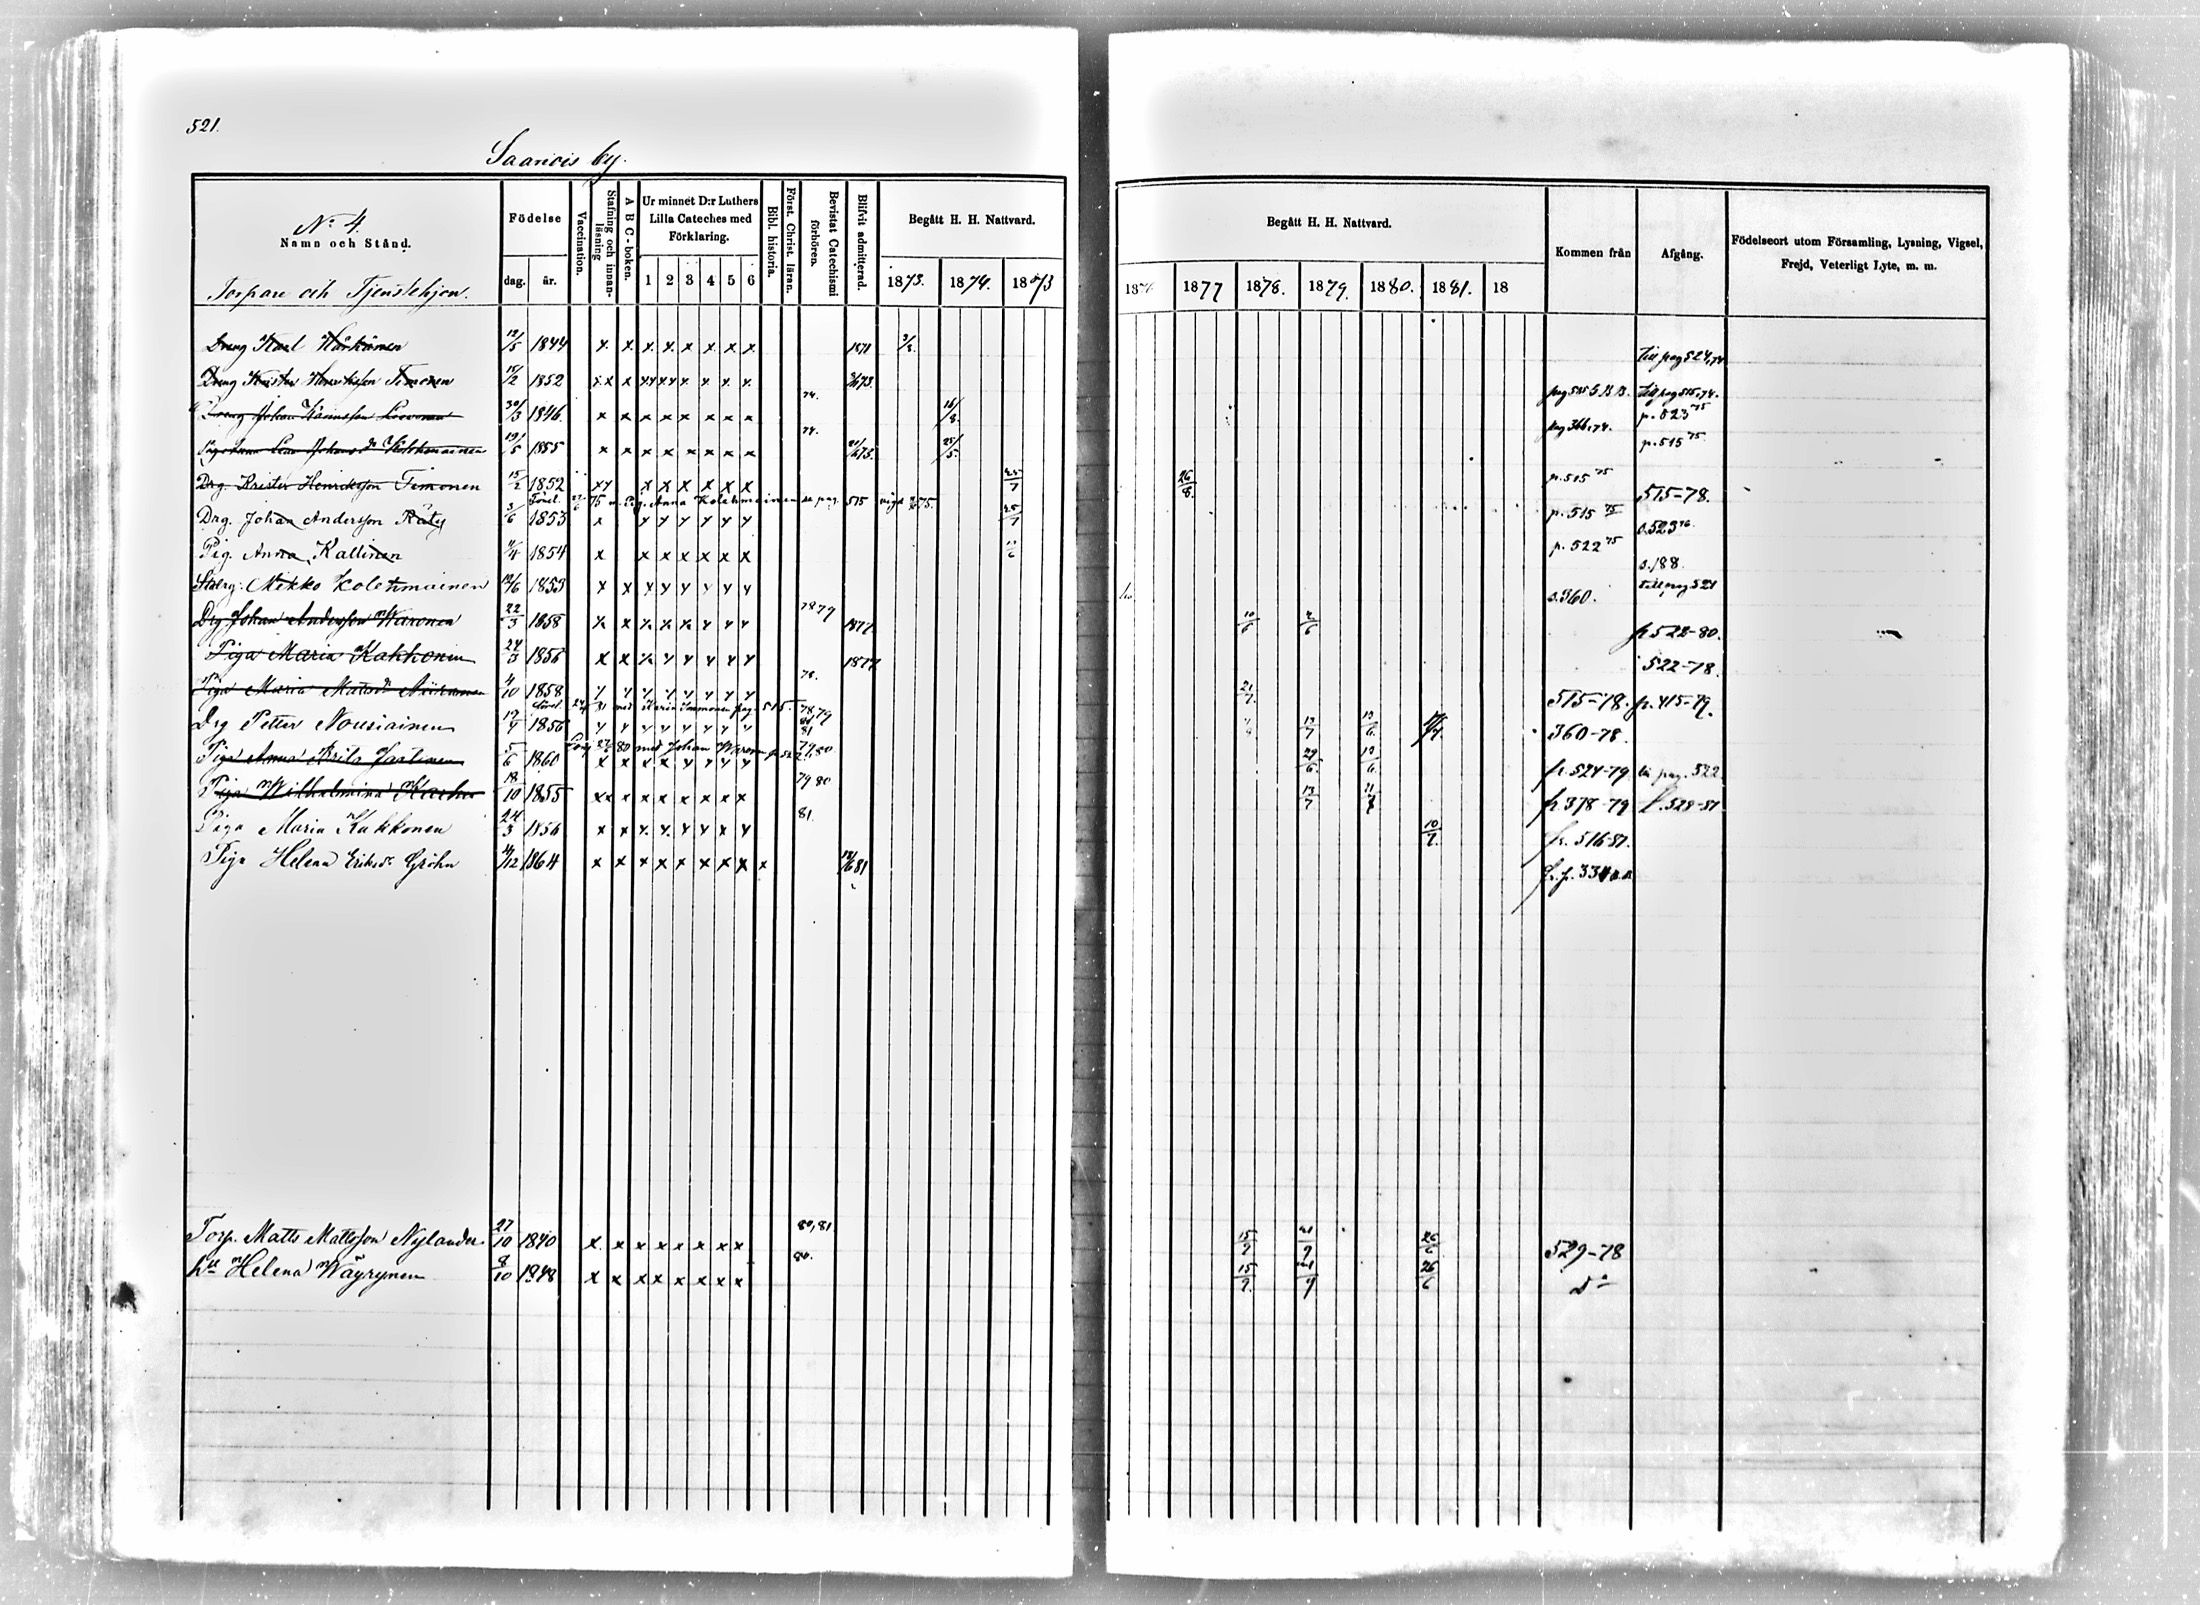 521.
Saariois by.
No 4.
Namn och Stånd.
Torpare och Tjenstehjon.
Födelse
dag. år.
Vaccination.
Stafning och innanläsning
A B C-boken.
Ur minnet D:r Luthers Lilla Cateches med Förklaring.
1 2 3 4 5 6
Bibl. historia.
Först. Christ. läran.
Bevistat Catechismi förhören.
Blifvit admitterad.
Begått H. H. Nattvard.
1873. 1874. 1873
Begått H. H. Nattvard.
1876 1877 1878. 1879. 1880. 1881. 18
Kommen från
Afgång.
Födelseort utom Församling, Lysning, Vigsel, Frejd, Veterligt Lyte, m. m.
Dreng Karl Härkönen 12/5 1844 x x x x x x x x 1871 till pag 524,74
Dreng Krister Henriksson Timonen 15/2 1852 x x x x x x x x x x till pag 515,74.
Dreng Johan 30/3 1846 x x x x x x x x 74. 16/8. p. 523 75
Johansdr Kolehmainen 19/5 1855 x x x x x x x x 74. 25/5. pag 366,74. p. 515 75
Drg. Krister Henriksson Timonen 15/2 1852 x x x x x x x x 25/7 26/8. p. 515 75 515-78.
75 m. Pig. Anna Kolehmainen se pag. 515 vigd 75.
Drg. Johan Andersson Räty 3/6 1853 x x x x x x x 25/7 p. 515 75 s. 523 76
Pig. Anna Kallinen 1854 x x x x x x x p. 522 75 s. 188.
Mikko Kolehmainen 1853 x x x x x x x x s. 360. till pag 521
Drg Johan Andersson Waronen 22/3 1858 x x x x x x x x 78 79 1877. 10/6 p 522-80.
Piga Maria Kakkonen 24/3 1856 x x x x x x x x 1877 522-78.
Piga Maria Mattsdr 4/10 1858 x x x x x x x x 78. 21/7. 515-78. p. 415-79.
med Maria Immonen pag 515.
Drg Petter Nousiainen 1856 x x x x x x x x 78 79 80 81 13/7 360-78.
80 med Johan Waronen p 522
Piga Anna Brita 5/6 1860 x x x x x x x x 79 80 29/6. p. 524-79 till pag. 522
Piga Wilhelmina 18/10 1855 x x x x x x x x x 79 80 13/7 p. 378-79 p. 528-81
Piga Maria Kakkonen 24/3 1856 x x x x x x x x 81. 10/7. fr. 516-81.
Piga Helena Eriksdr Gröhn 4/12 1864 x x x x x x x x x 81 fr. p. 334
Torp. Matts Mattsson Nylander 27/10 1840 x x x x x x x x 80, 81 15/9 21/9 26/6 529-78
hu Helena Wäyrynen 8/10 1848 x x x x x x x x 80. 15/9. 21/9 26/6 do